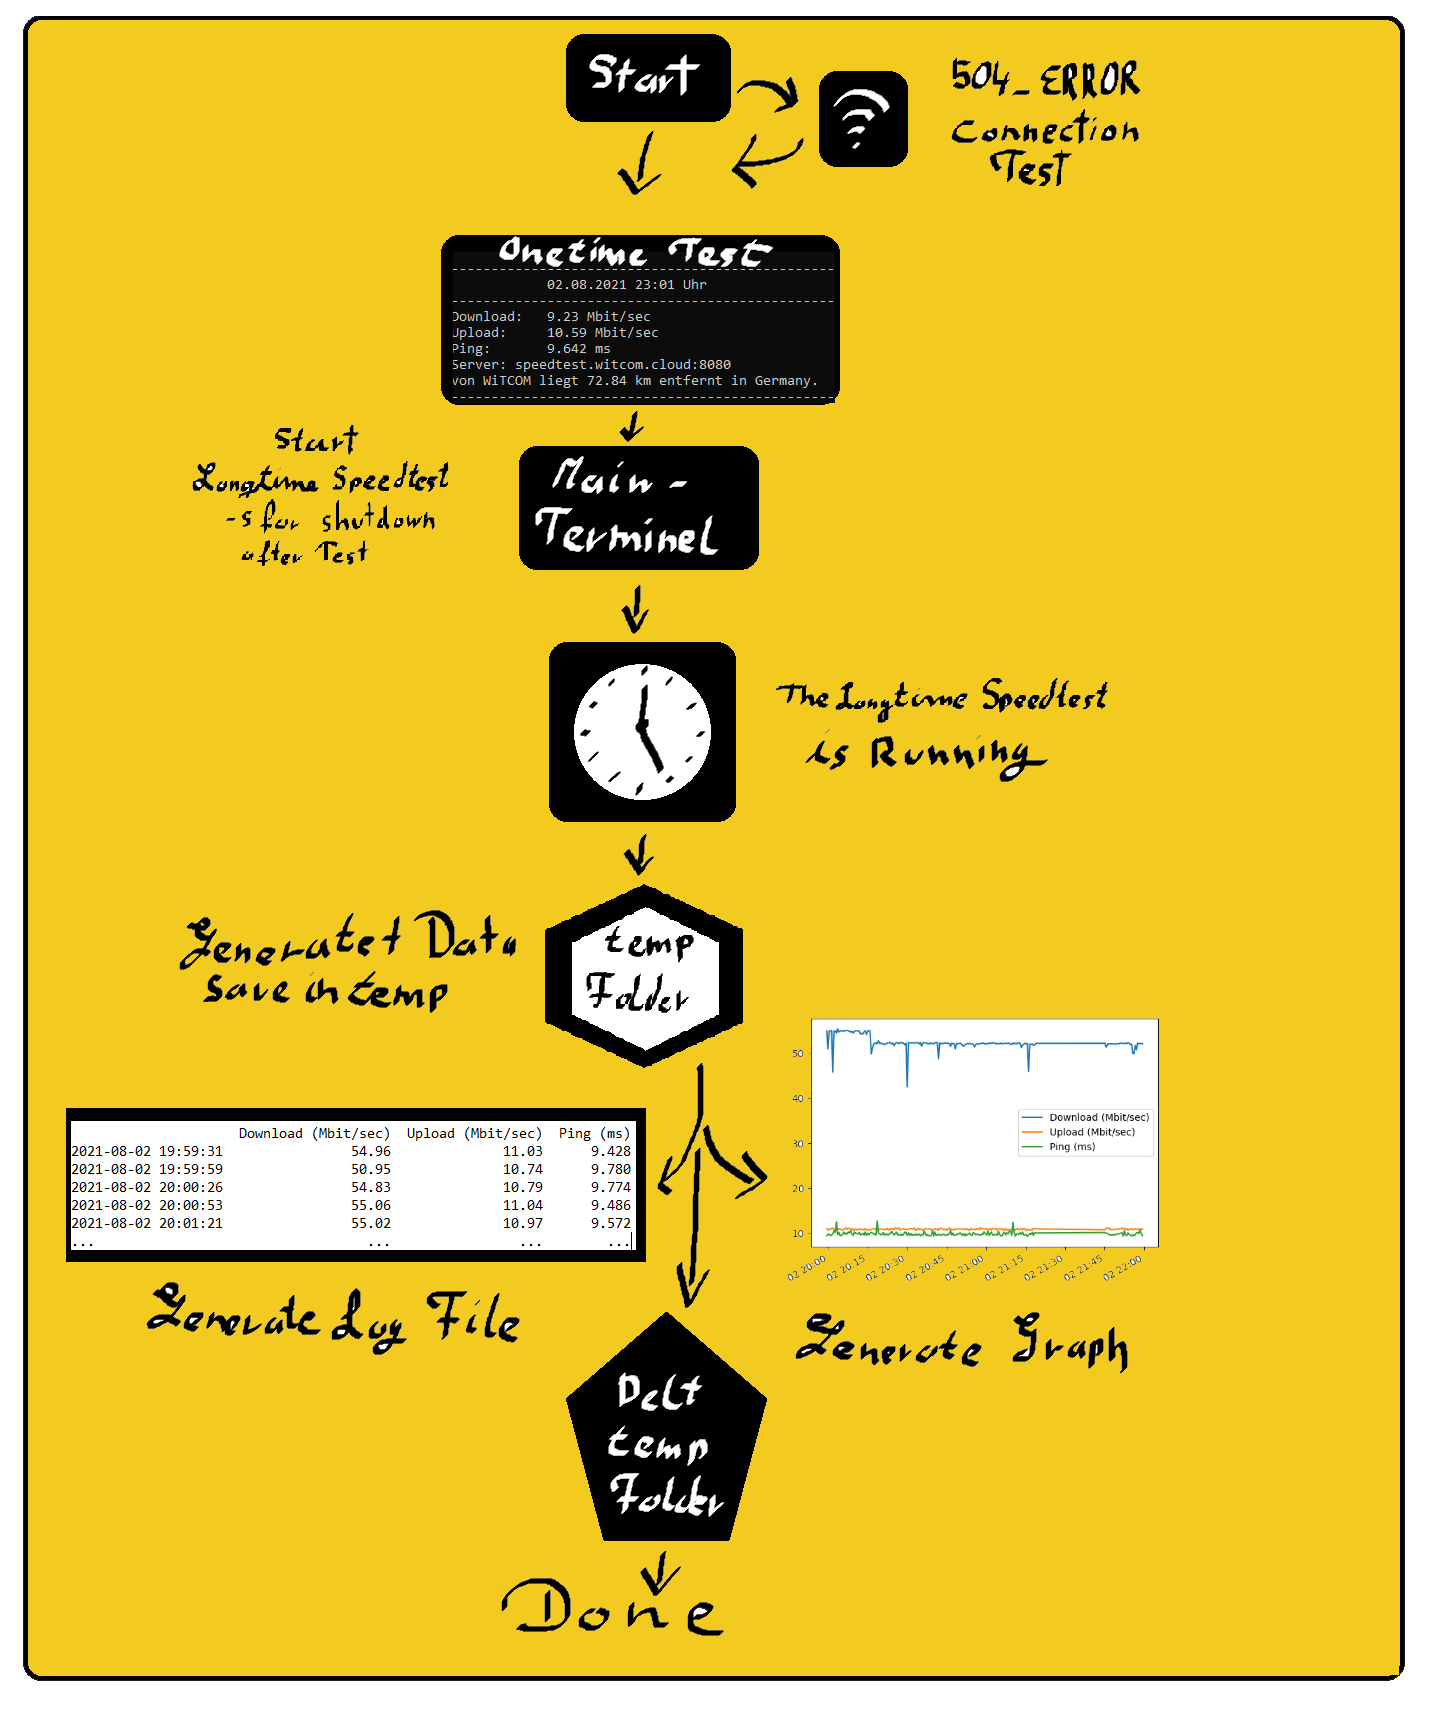 Start
504_ERROR
Connection
Test
Onetime Test
--------------------------------------------------
02.08.2021 23:01 Uhr
--------------------------------------------------
Download: 9.23 Mbit/sec
Upload: 10.59 Mbit/sec
Ping: 9.642 ms
Server: speedtest.witcom.cloud:8080
von WiTCOM liegt 72.84 km entfernt in Germany.
--------------------------------------------------
Start
Longtime Speedtest
-s for shutdown
after Test
Main-
Terminel
The Longtime Speedtest
is Running
Generatet Data
save in temp
temp
Folder
Download (Mbit/sec) Upload (Mbit/sec) Ping (ms)
2021-08-02 19:59:31 54.96 11.03 9.428
2021-08-02 19:59:59 50.95 10.74 9.780
2021-08-02 20:00:26 54.83 10.79 9.774
2021-08-02 20:00:53 55.06 11.04 9.486
2021-08-02 20:01:21 55.02 10.97 9.572
... ... ... ...
Generate Log File
50
40
30
20
10
Download (Mbit/sec)
Upload (Mbit/sec)
Ping (ms)
02 20:00 02 20:15 02 20:30 02 20:45 02 21:00 02 21:15 02 21:30 02 21:45 02 22:00
Generate Graph
Delt
temp
Folder
Done